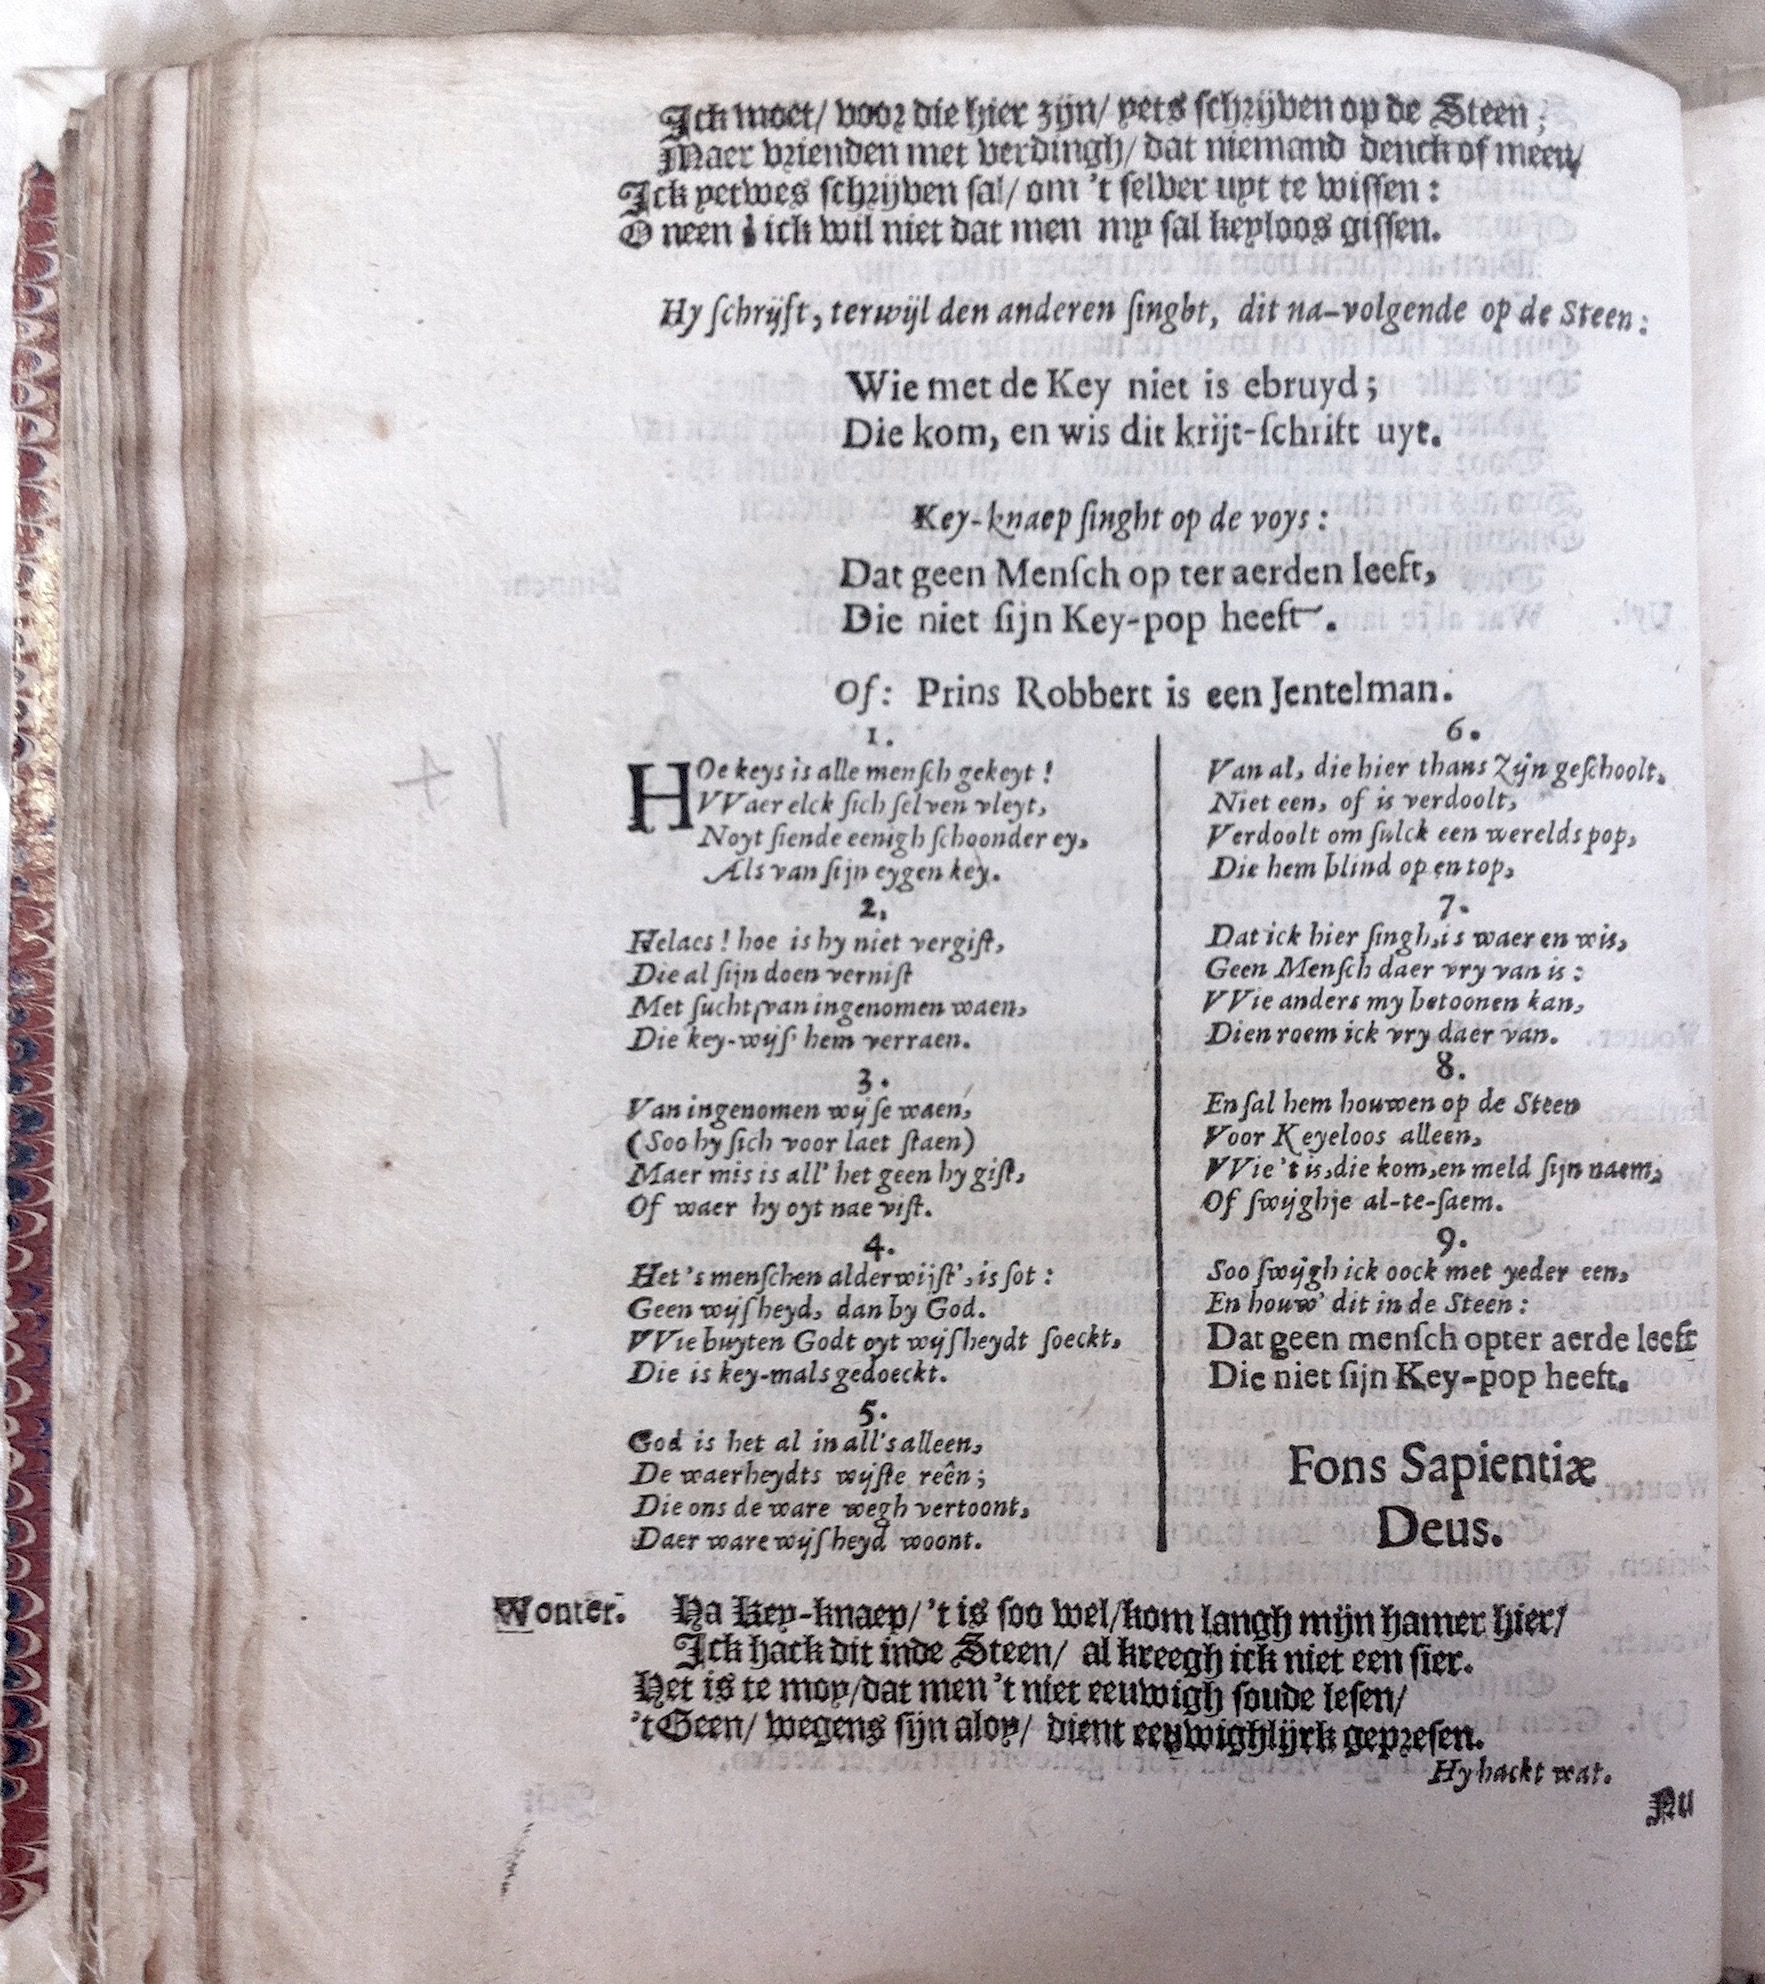 Ick moet/ voor die hier zijn/ yets ſchrijven op de Steen;
Maer vrienden met verdingh/ dat niemand denck of meen/
Ick yetwes ſchrijven ſal/ om 't ſelver uyt te wiſſen:
O neen! ick wil niet dat men my ſal keyloos giſſen.
Hy ſchrijft, terwijl den anderen ſinght, dit na-volgende op de Steen:
Wie met de Key niet is ebruyd;
Die kom, en wis dit krijt-ſchrift uyt.
Key-knaep ſinght op de voys:
Dat geen Menſch op ter aerden leeft,
Die niet ſijn Key-pop heeft.
Of: Prins Robbert is een Jentelman.
1.
HOe keys is alle menſch gekeyt!
VVaer elck ſich ſelven vleyt,
Noyt ſiende eenigh ſchoonder ey,
Als van ſijn eygen key.
2.
Helaes! hoe is hy niet vergiſt,
Die al ſijn doen verniſt
Met ſucht van ingenomen waen,
Die key-wijſ' hem verraen.
3.
Van ingenomen wijſe waen,
(Soo hy ſich voor laet ſtaen)
Maer mis is all' het geen hy giſt,
Of waer hy oyt nae viſt.
4.
Het 's menſchen alderwijſt', is ſot:
Geen wijſheyd, dan by God.
VVie buyten Godt oyt wijſheydt ſoeckt,
Die is key-mals gedoeckt.
5.
God is het al in all's alleen,
De waerheydts wijſte reên;
Die ons de ware wegh vertoont,
Daer ware wijſheyd woont.
6.
Van al, die hier thans zijn geſchoolt,
Niet een, of is verdoolt,
Verdoolt om ſulck een werelds pop,
Die hem blind op en top,
7.
Dat ick hier ſingh, is waer en wis,
Geen Menſch daer vry van is:
VVie anders my betoonen kan,
Dien roem ick vry daer van.
8.
En ſal hem houwen op de Steen
Voor Keyeloos alleen,
VVie 't is, die kom, en meld ſijn naem,
Of ſwijghje al-te-ſaem.
9.
Soo ſwijgh ick oock met yeder een,
En houw' dit in de Steen:
Dat geen menſch opter aerde leeft
Die niet ſijn Key-pop heeft.
Fons Sapientiæ
Deus.
Wouter. Ha Key-knaep/ 't is ſoo wel/ kom langh mijn hamer hier/
Ick hack dit inde Steen/ al kreegh ick niet een ſier.
Het is te moy/ dat men 't niet eeuwigh ſoude leſen/
't Geen/ wegens ſijn aloy/ dient eeuwighlijck gepreſen.
Hy hackt wat.
Nu